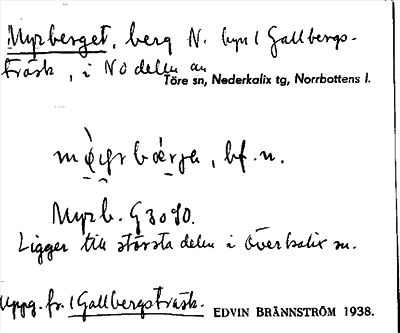 Myrberget, berg N. byn (Gallbergs-
träsk, i NO delen av
Töre sn, Nederkalix tg, Norrbottens l.
bf. n.
Myrb. G 30 d/0.
Ligger till största delen i Överkalix sn.
Uppg. fr. (Gallbergsträsk.
EDVIN BRÄNNSTRÖM 1938.